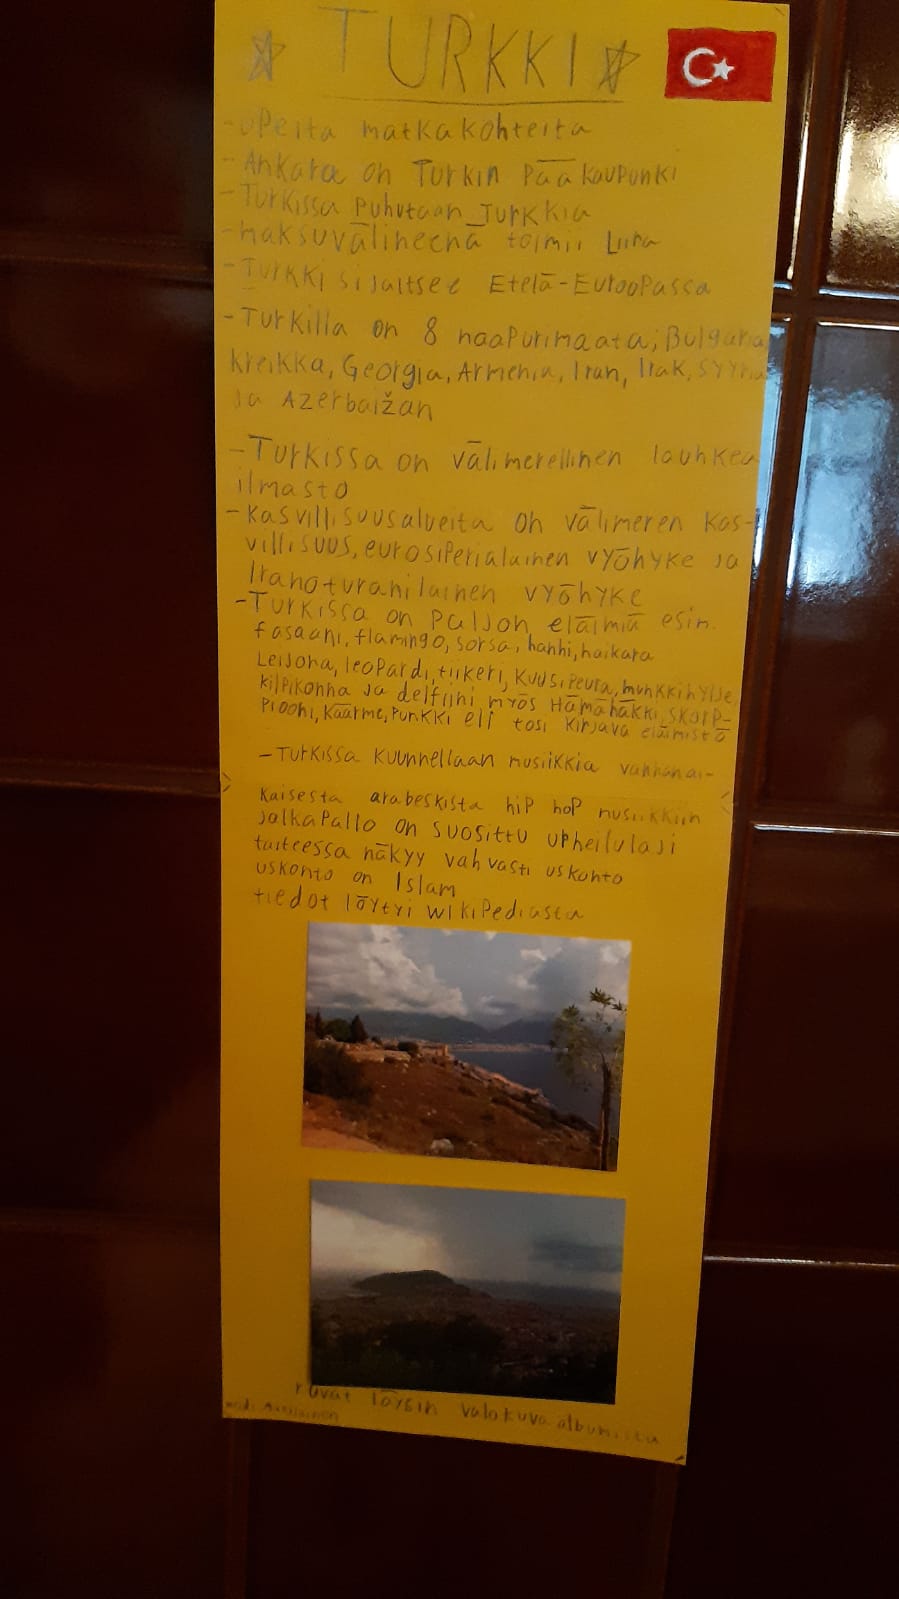 TURKKI
-upeita matkakohteita
-Ankara on Turkin Pääkaupunki
-Turkissa puhutaan Turkkia
-maksuvälineenä toimii Liira
-Turkki sijaitsee Etelä-Euroopassa
-Turkilla on 8 naapurimaata; Bulgaria,
kreikka, Georgia, Armenia, Iran, Irak, syyria
ja Azerbaižan
-Turkissa on välimerellinen lauhkea
ilmasto
-kasvillisuusalueita on välimeren kas-
villisuus, eurosiperialainen vyöhyke ja
Iranoturanilainen vyöhyke
-Turkissa on paljon eläimiä esim.
fasaani, flamingo, sorsa, hanhi, haikara
Leijona, leopardi, tiikeri, kuusipeura, munkkihylje,
kilpikonna ja delfiini myös Hämähäkki, skorp-
piooni, käärme, punkki eli tosi kirjava eläimistö
-Turkissa kuunnellaan musiikkia vanhanai-
kaisesta arabeskista hip hop musiikkiin
jalkapallo on suosittu urheilulaji
taiteessa näkyy vahvasti uskonto
uskonto on Islam
tiedot löytyi wikipediasta
kuvat löysin valokuva albumista